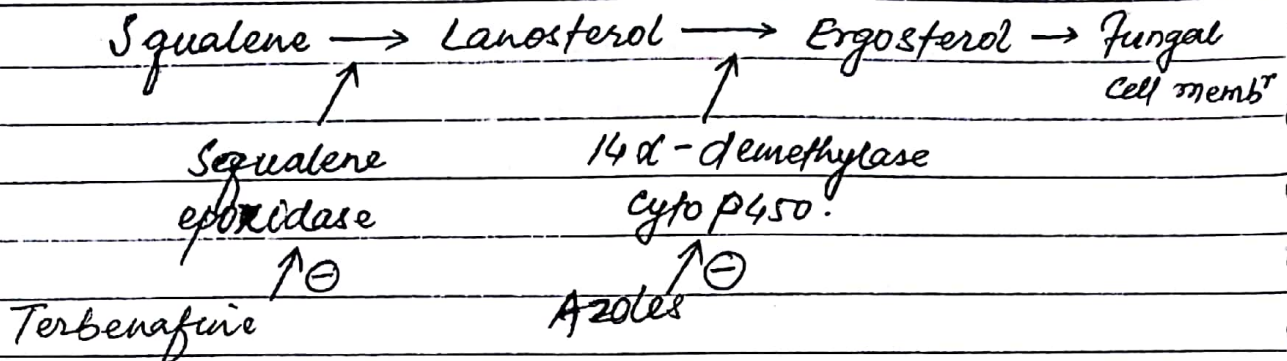 Squalene → Lanosterol → Ergosterol → Fungal
Cell membr
Squalene 14α-demethylase
epoxidase Cyto P450.
↑⊖ ↑⊖
Terbenafine Azoles